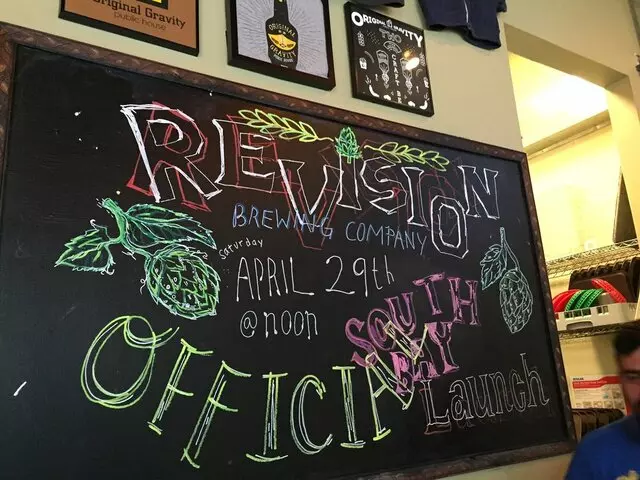 Original Gravity
public house
ORIGINAL
GRAVITY
ORIGINAL GRAVITY
REVISION
BREWING COMPANY
Saturday
APRIL 29th
@noon
SOUTH
BAY
OFFICIAL
Launch